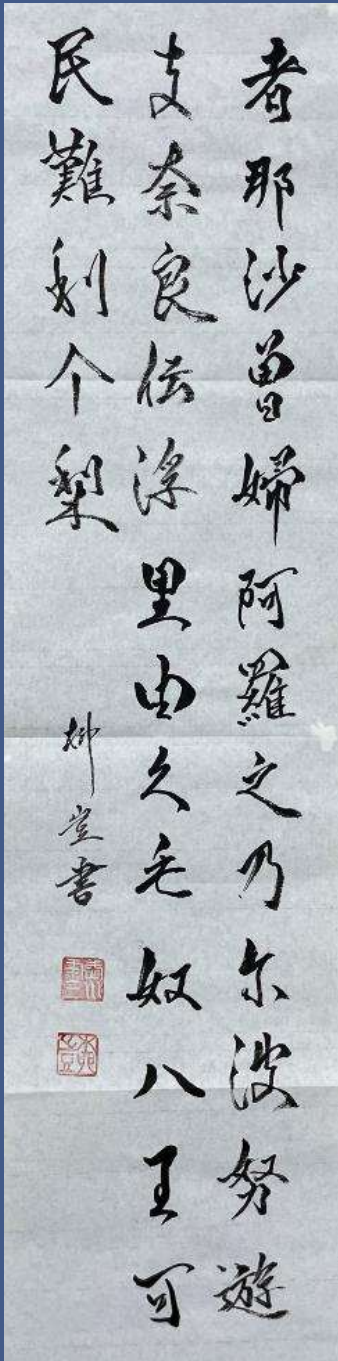 者那沙曽婦阿羅之乃尓波努遊
支奈良伝浮里由久毛奴八王可
民難利个梨
書